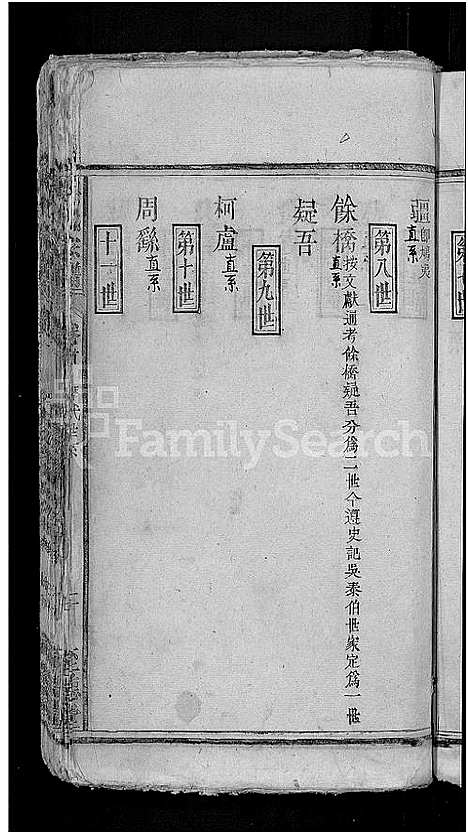 疆即鳩夷
直系
第八世
餘橋按文獻通考餘橋疑吾分爲二世今遵史記吳泰伯世家定爲一世
直系
疑吾
第九世
柯盧直系
第十世
周繇直系
十一世
FamilySearch